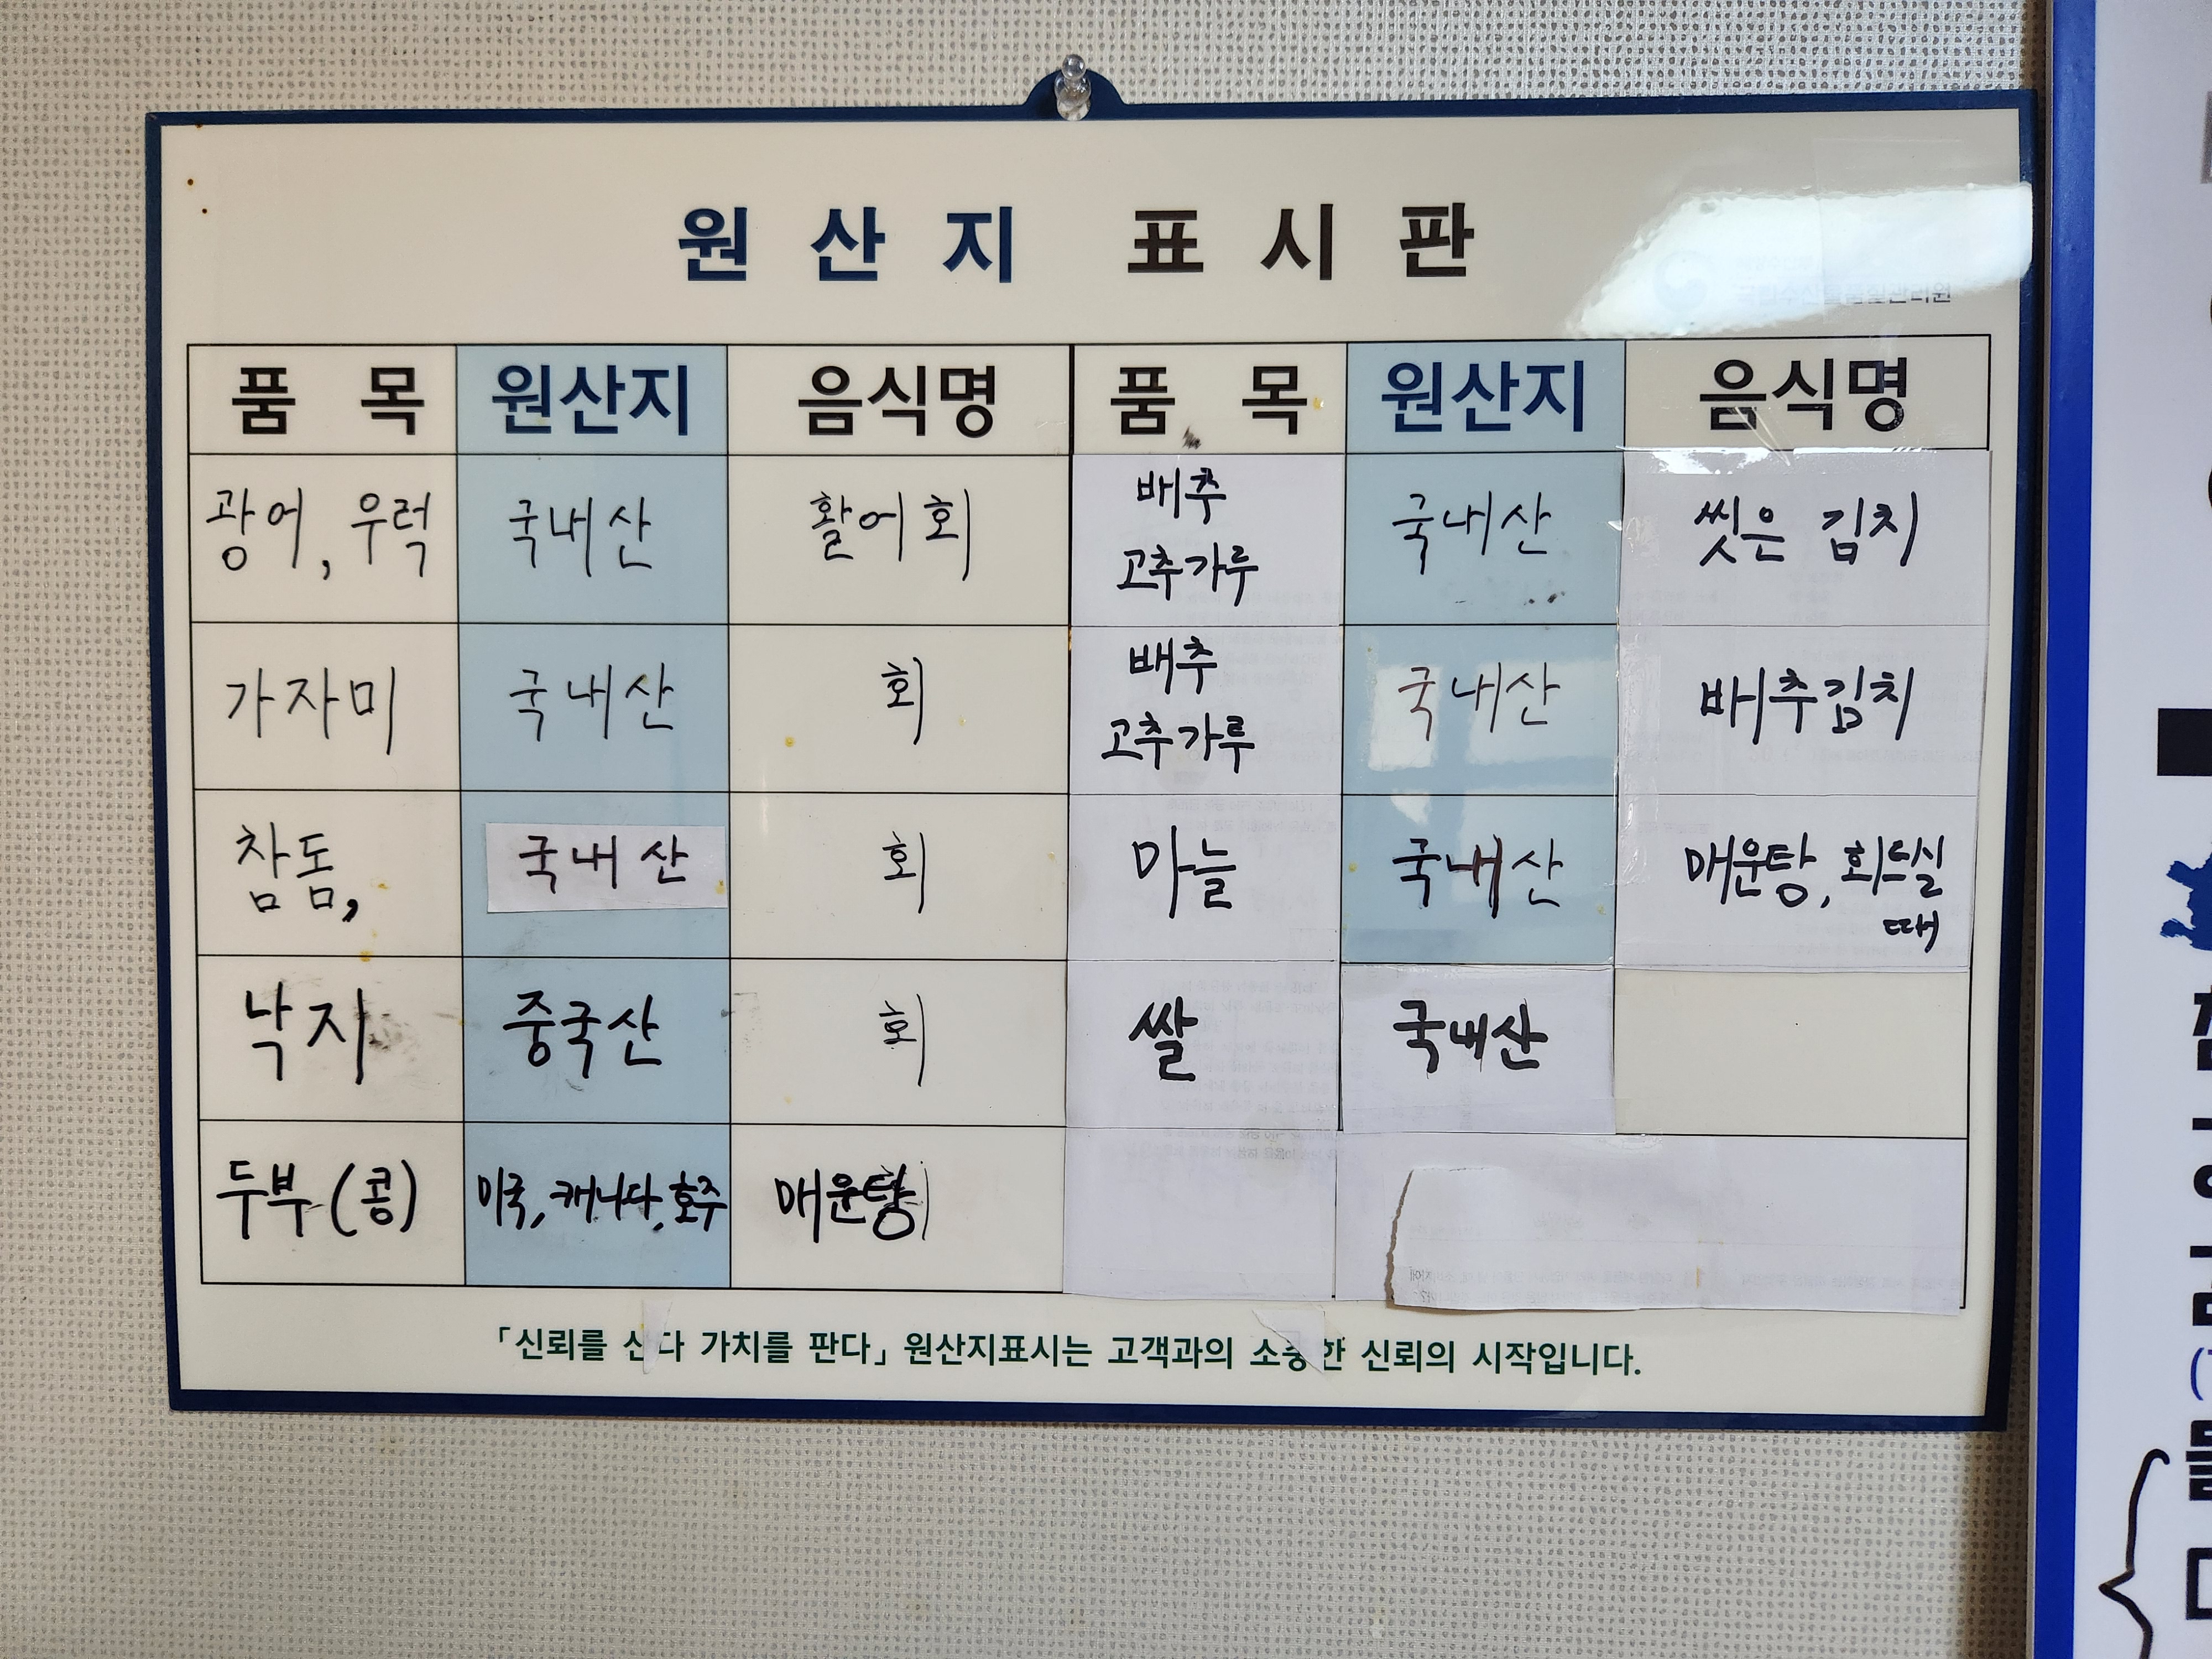 원산지 표시판
품목 원산지 음식명 품목 원산지 음식명
광어, 우럭 국내산 활어회 배추 고추가루 국내산 씻은 김치
가자미 국내산 회 배추 고추가루 국내산 배추김치
참돔, 국내산 회 마늘 국내산 매운탕, 회드실 때
낙지 중국산 회 쌀 국내산
두부(콩) 미국, 캐나다, 호주 매운탕
「신뢰를 산다 가치를 판다」 원산지표시는 고객과의 소중한 신뢰의 시작입니다.